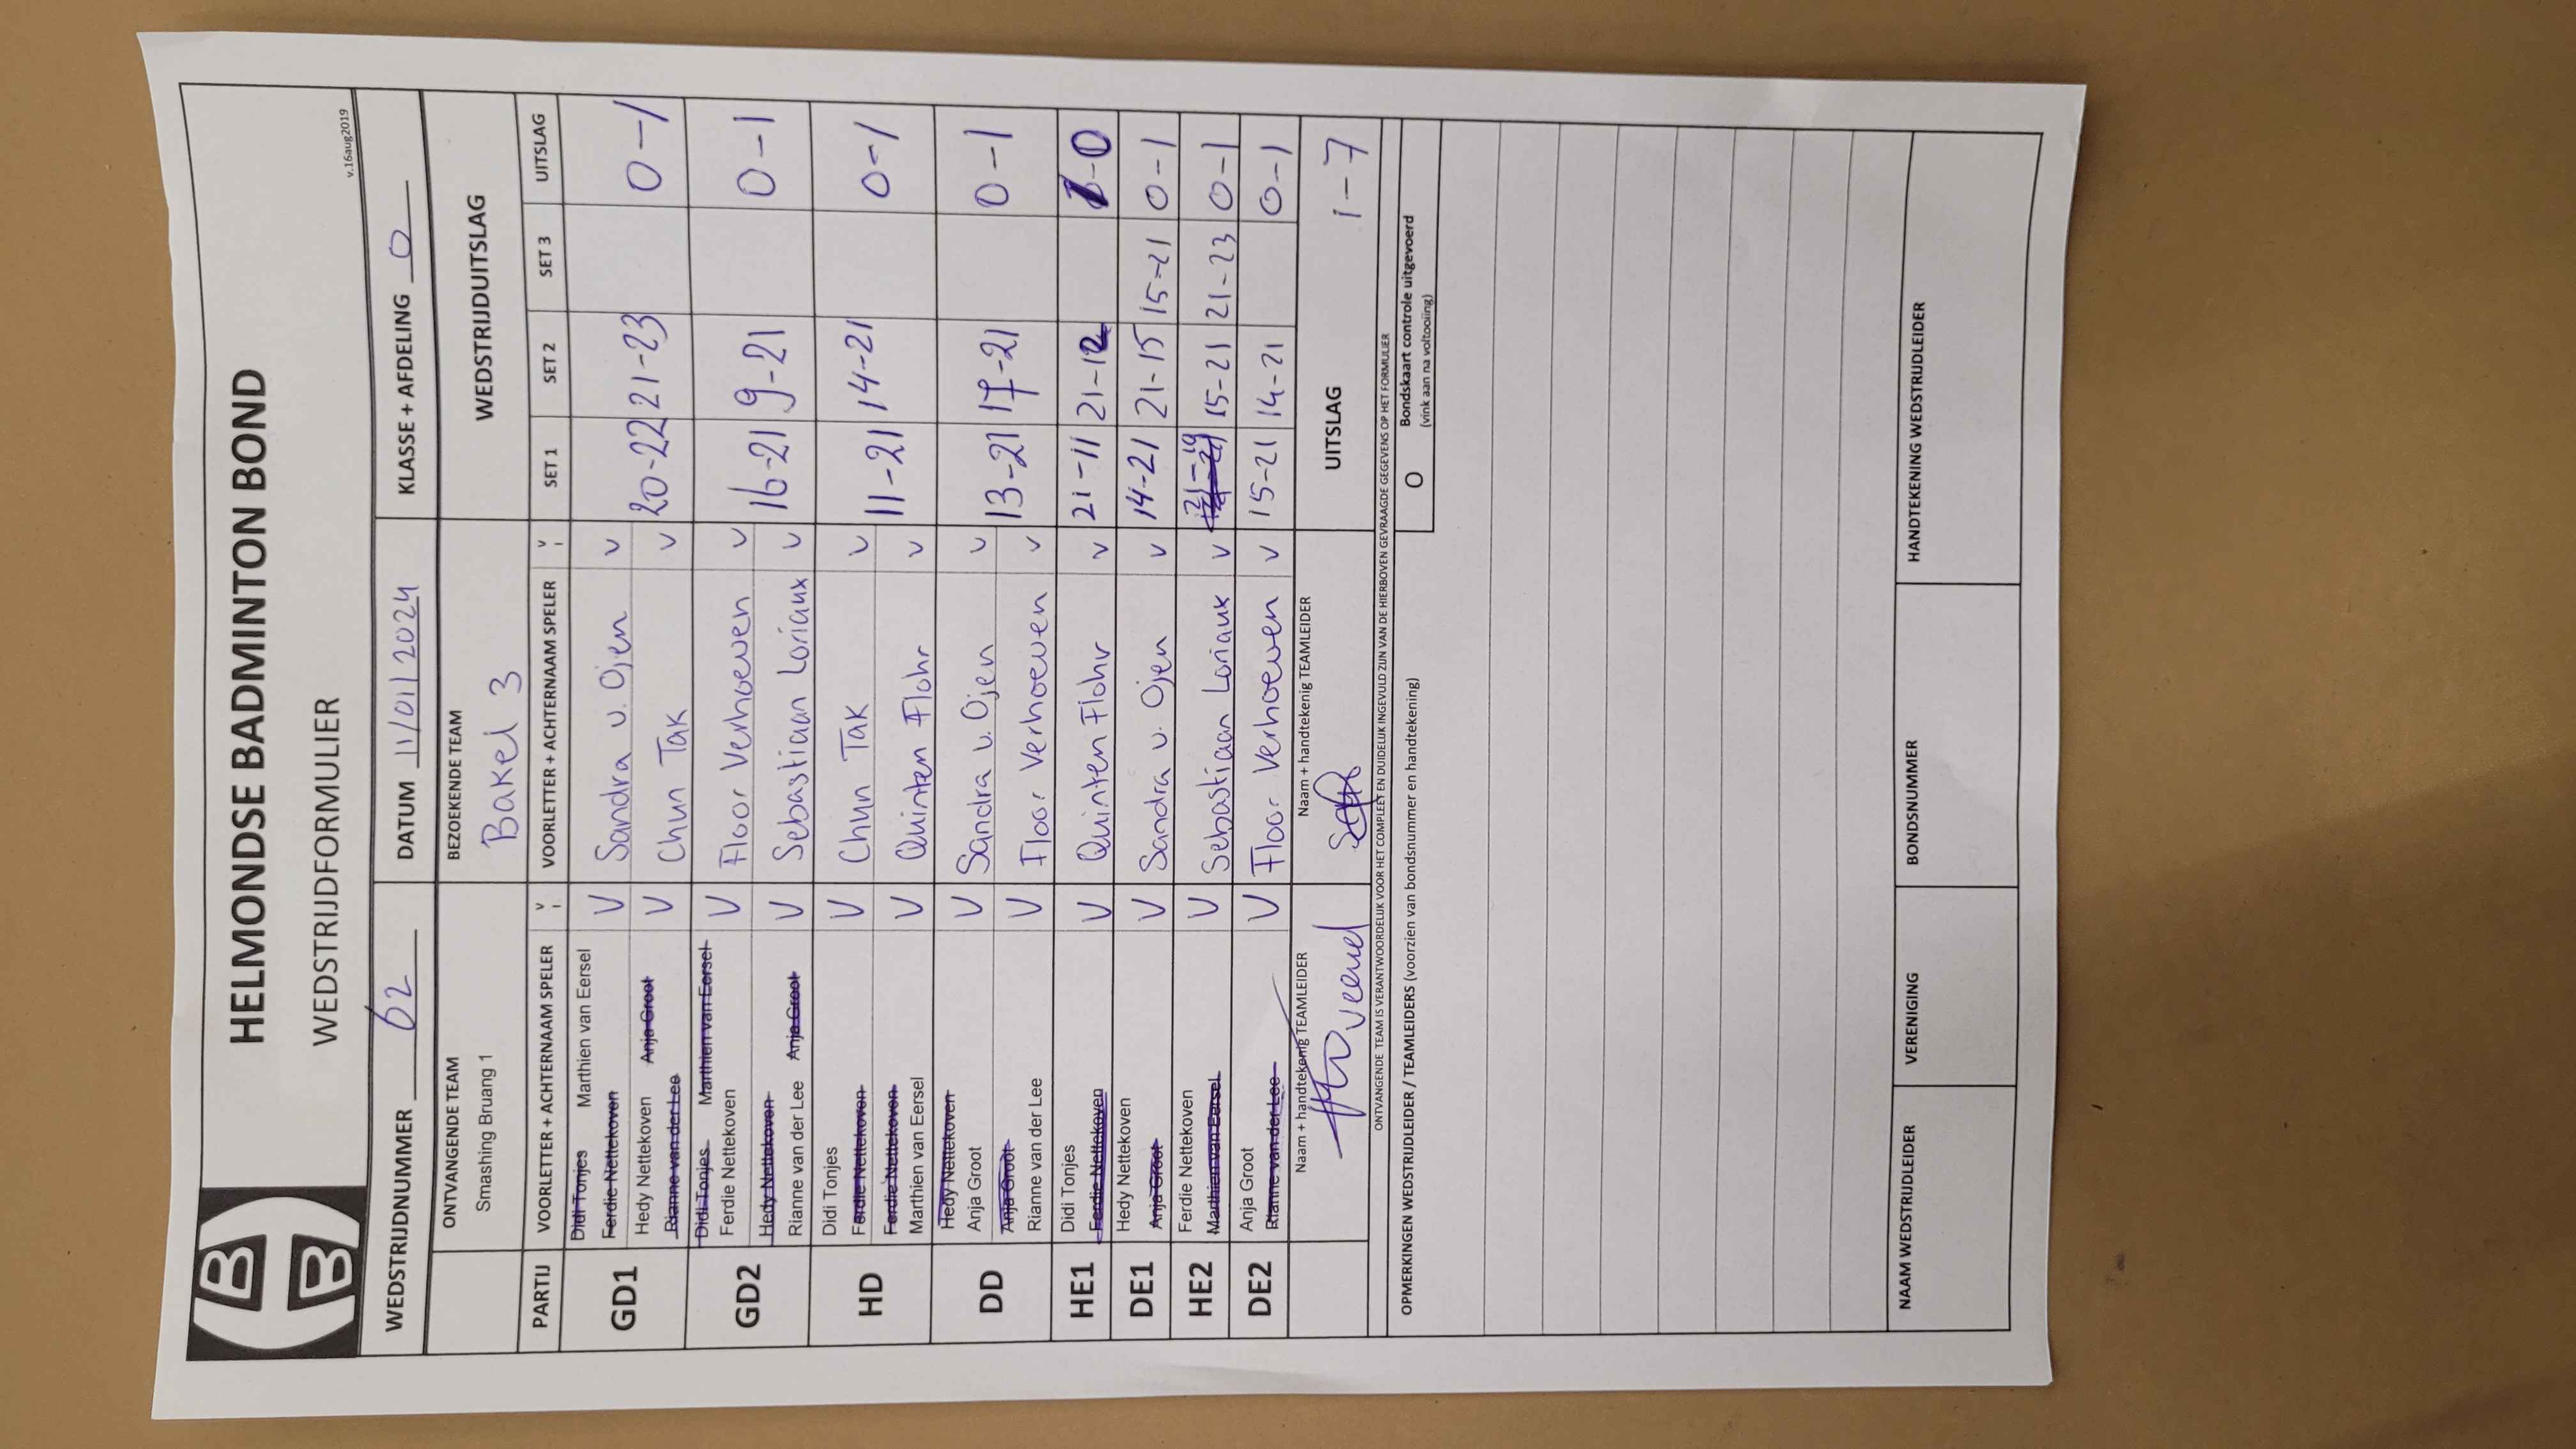 HELMONDSE BADMINTON BOND
WEDSTRIJDFORMULIER
v.16aug2019
WEDSTRIJDNUMMER 62 DATUM 11/01/2024 KLASSE + AFDELING 0
ONTVANGENDE TEAM BEZOEKENDE TEAM WEDSTRIJDUITSLAG
Smashing Bruang 1 Bakel 3
PARTIJ VOORLETTER + ACHTERNAAM SPELER V VOORLETTER + ACHTERNAAM SPELER V SET 1 SET 2 SET 3 UITSLAG
GD1
Didi Tonjes Marthien van Eersel V Sandra v. Ojen v
Ferdie Nettekoven
Hedy Nettekoven Anja Groot V Chun Tak v 20-22 21-23 0-1
Rianne van der Lee
GD2
Didi Tonjes Marthien van Eersel V Floor Verhoeven v
Ferdie Nettekoven
Hedy Nettekoven V Sebastiaan Loriaux v 16-21 9-21 0-1
Rianne van der Lee Anja Groot
HD
Didi Tonjes V Chun Tak v
Ferdie Nettekoven
Ferdie Nettekoven V Quinten Flohr v 11-21 14-21 0-1
Marthien van Eersel
DD
Hedy Nettekoven V Sandra v. Ojen v
Anja Groot
Anja Groot V Floor Verhoeven v 13-21 17-21 0-1
Rianne van der Lee
HE1 Didi Tonjes V Quinten Flohr v 21-11 21-12 1-0
Ferdie Nettekoven
DE1 Hedy Nettekoven V Sandra v. Ojen v 14-21 21-15 15-21 0-1
Anja Groot
HE2 Ferdie Nettekoven V Sebastiaan Loriaux v 21-19 15-21 21-23 0-1
Marthien van Eersel
DE2 Anja Groot V Floor Verhoeven v 15-21 14-21 0-1
Rianne van der Lee
Naam + handtekenig TEAMLEIDER Naam + handtekenig TEAMLEIDER UITSLAG 1-7
ONTVANGENDE TEAM IS VERANTWOORDELIJK VOOR HET COMPLEET EN DUIDELIJK INGEVULD ZIJN VAN DE HIERBOVEN GEVRAAGDE GEGEVENS OP HET FORMULIER
OPMERKINGEN WEDSTRIJDLEIDER / TEAMLEIDERS (voorzien van bondsnummer en handtekening)
O Bondskaart controle uitgevoerd
(vink aan na voltooiing)
NAAM WEDSTRIJDLEIDER VERENIGING BONDSNUMMER HANDTEKENING WEDSTRIJDLEIDER